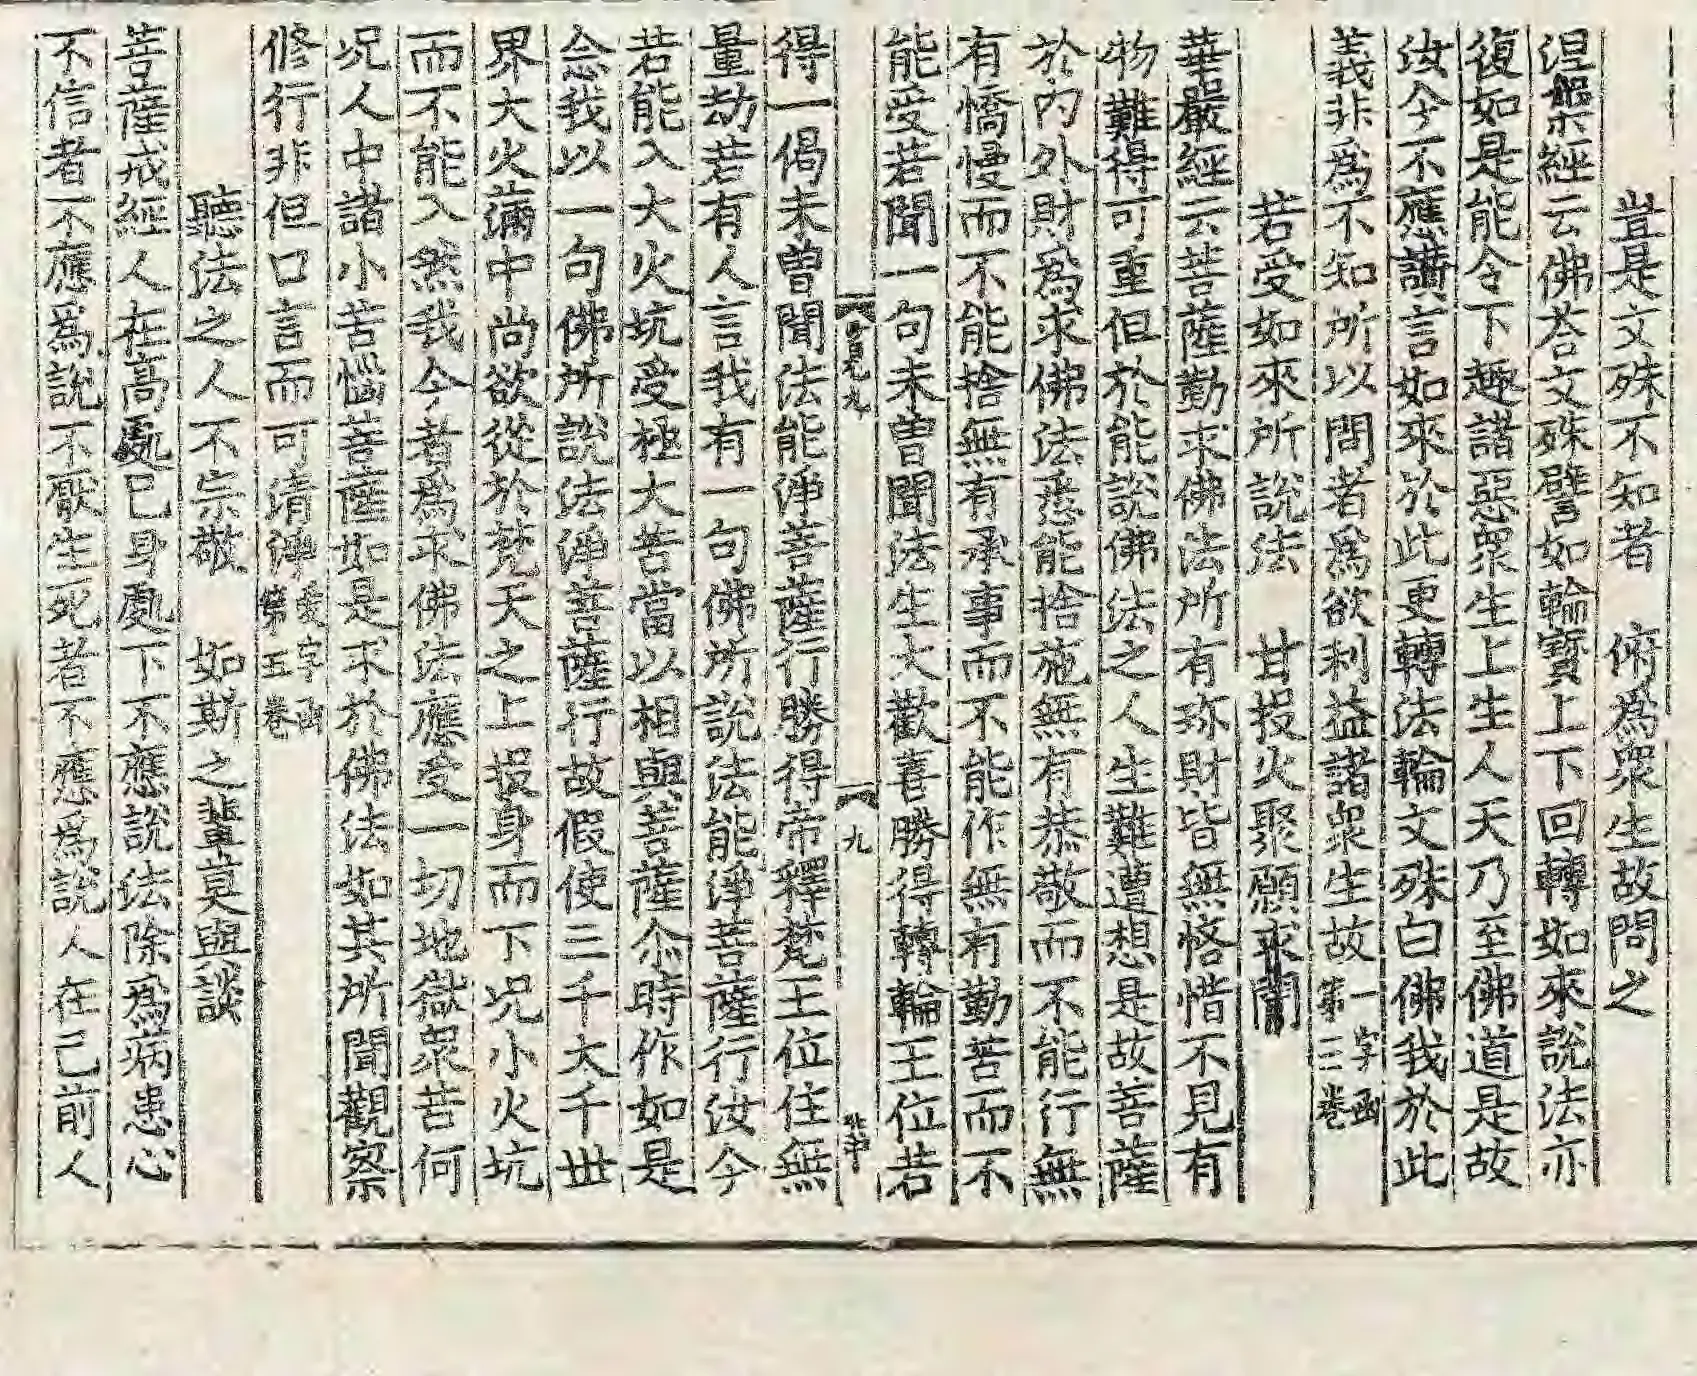 豈是文殊不知者　俯爲衆生故問之
涅槃經云佛荅文殊譬如輪寶上下回轉如來說法亦
復如是能令下趣諸惡衆生上生人天乃至佛道是故
汝今不應讃言如來於此更轉法輪文殊白佛我於此
義非爲不知所以問者爲欲利益諸衆生故一字函第三卷
若受如來所說法　甘投火聚願求聞
華嚴經云菩薩勤求佛法所有珎財皆無悋惜不見有
物難得可重但於能說佛法之人生難遭想是故菩薩
於內外財爲求佛法悉能捨施無有恭敬而不能行無
有憍慢而不能捨無有承事而不能作無有勤苦而不
能受若聞一句未曾聞法生大歡喜勝得轉輪王位若
九
得一偈未曾聞法能淨菩薩行勝得帝釋梵王位住無
量劫若有人言我有一句佛所說法能淨菩薩行汝今
若能入大火坑受極大苦當以相與菩薩尒時作如是
念我以一句佛所說法淨菩薩行故假使三千大千世
界大火滿中尚欲從於梵天之上投身而下况小火坑
而不能入然我今者爲求佛法應受一切地獄衆苦何
况人中諸小苦惱菩薩如是求於佛法如其所聞觀察
修行非但口言而可清淨愛字函第五卷
聽法之人不宗敬　如斯之輩莫與談
菩薩戒經人在高處已身處下不應說法除爲病患心
不信者不應爲說不厭生死者不應爲說人在己前人